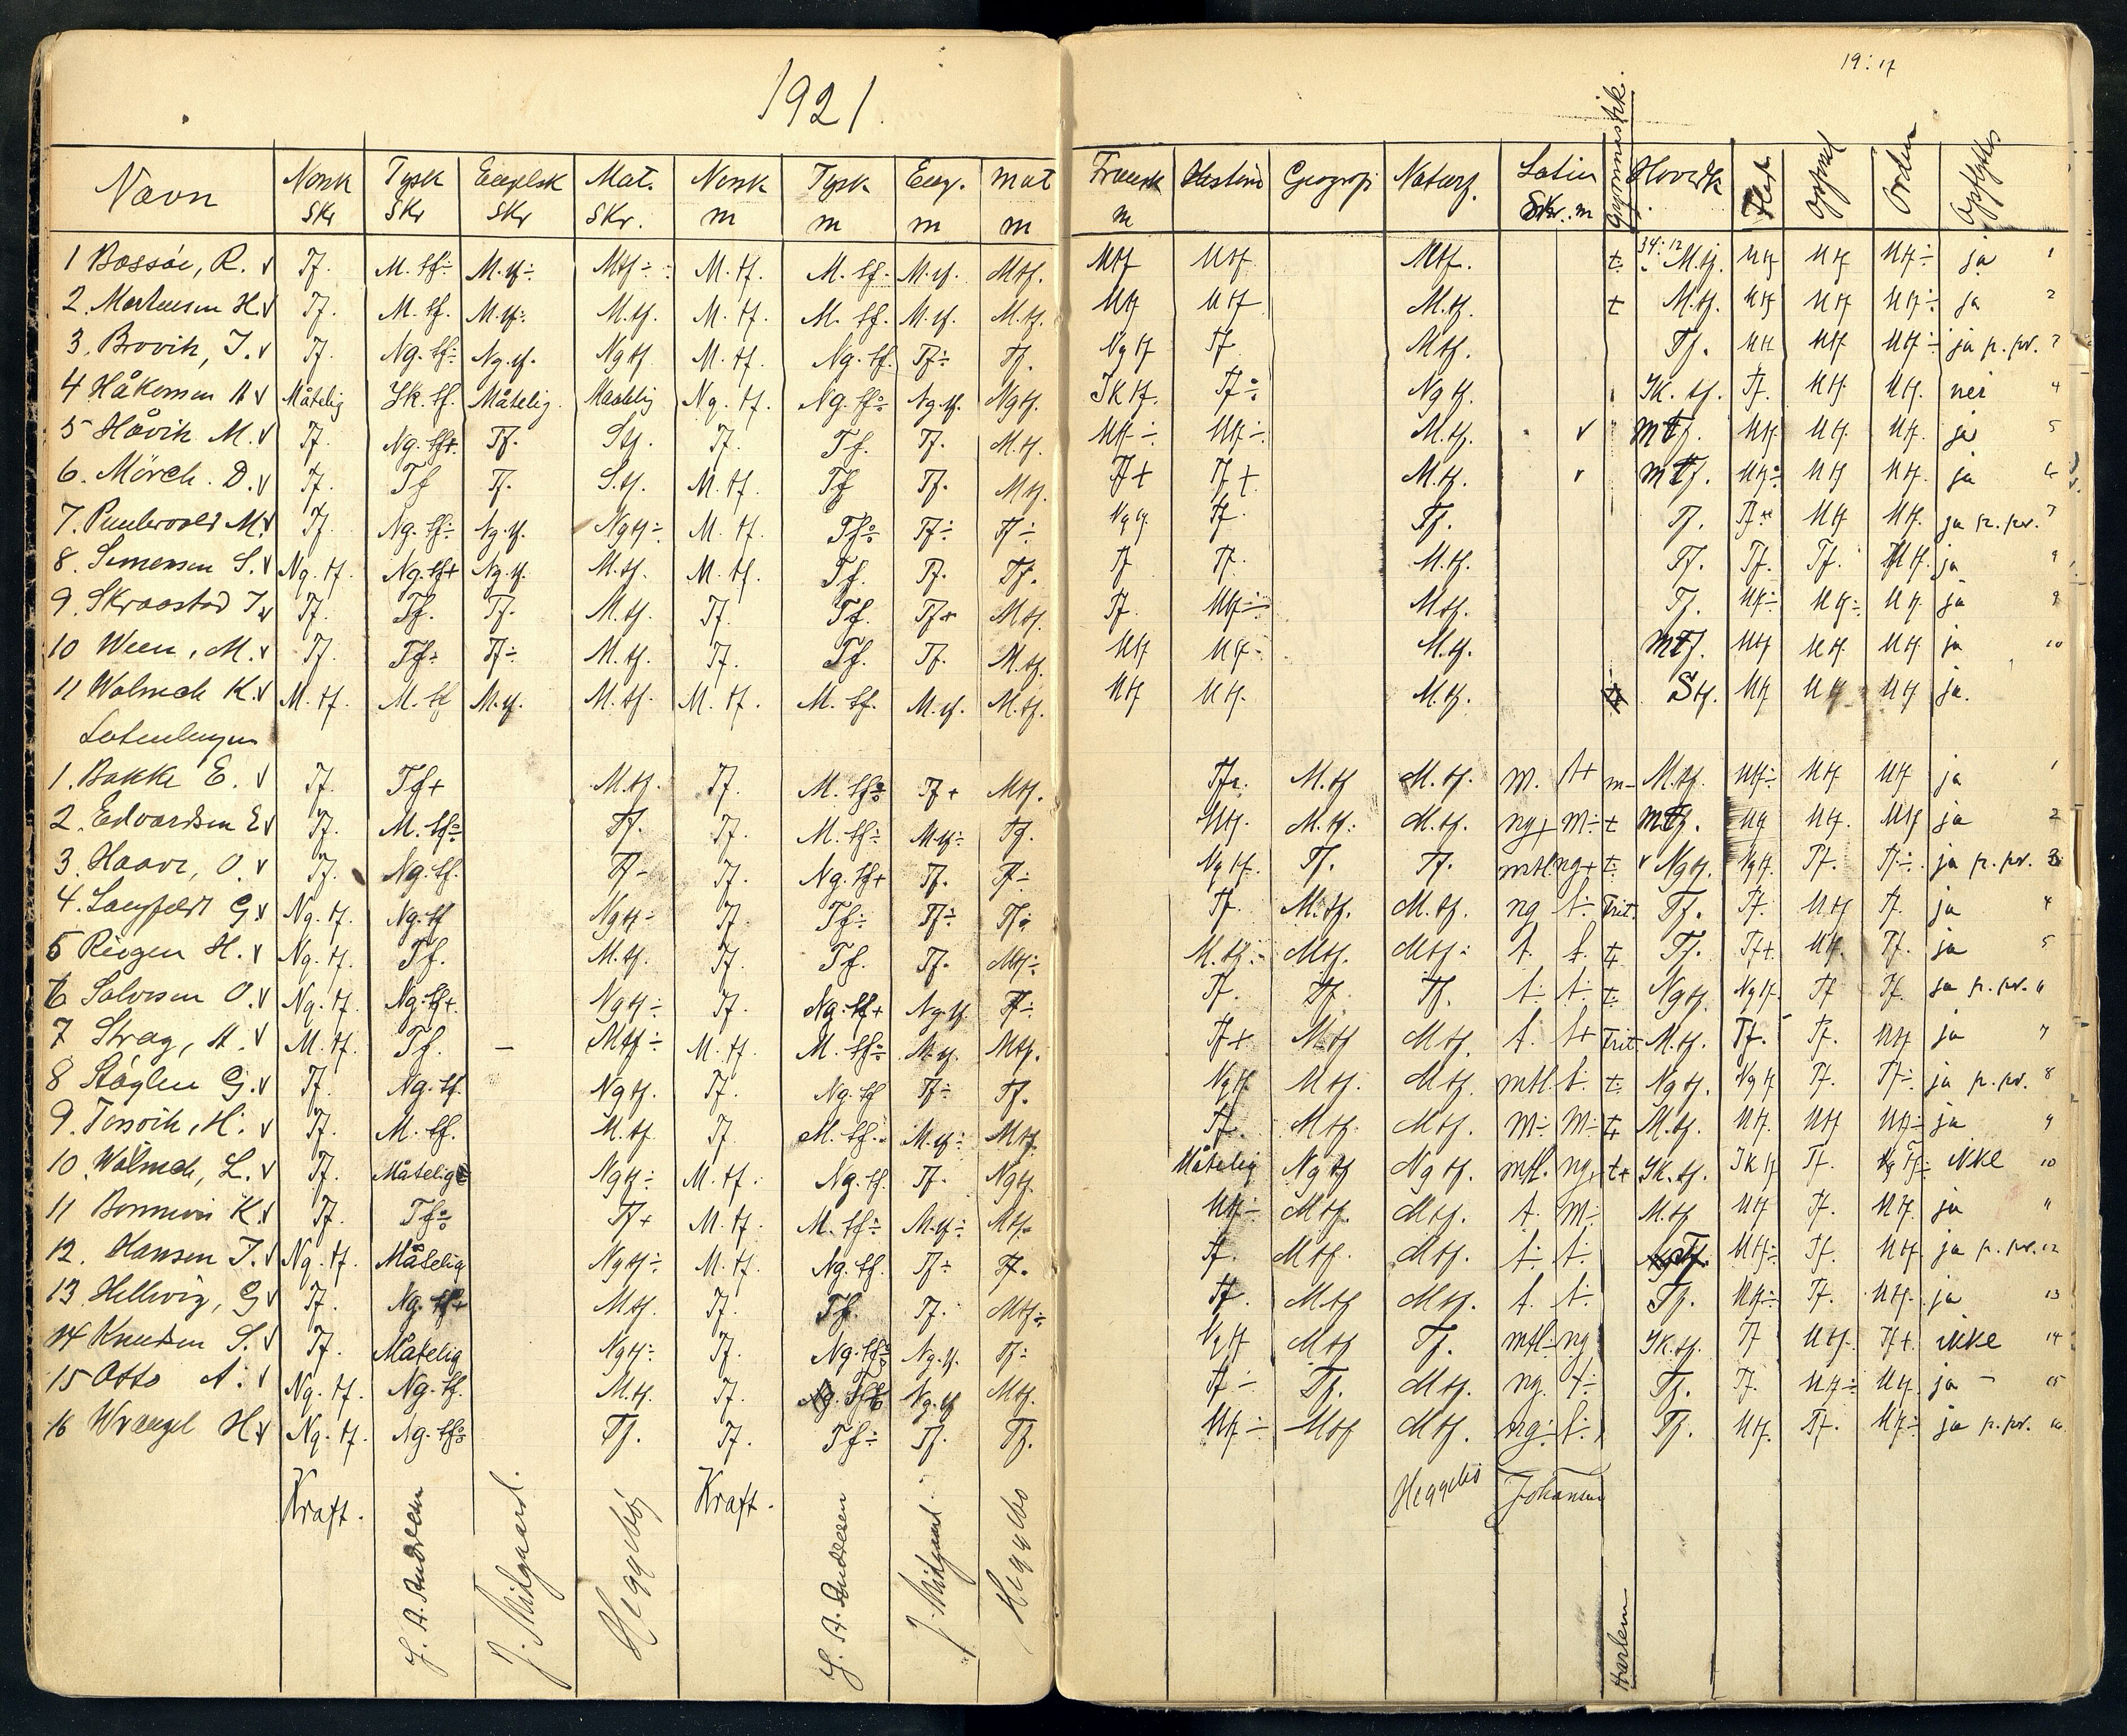 1921.
19:17
Navn Norsk Skr Tysk Skr Engelsk Skr Mat. Skr. Norsk m Tysk m Eng. m Mat m Fransk m Historie Geografi Naturf. Latin Skr. m Gymnastik. Hovedk. Flid Opførsel Orden Opflyttes
1 Bossöe, R. v Tf. M.tf÷ M.tf÷ Mtf÷ M.tf. M.tf. M.tf. Mtf. Mtf Mtf Mtf. t. 34:12 M.tf. Mtf Mtf Mtf÷ ja 1
2. Mortensen H. v Tf. M.tf. M.tf÷ M.tf. M.tf. M.tf. M.tf. M.tf. Mtf Mtf M.tf. t M.tf. Mtf Mtf Mtf÷ ja 2
3. Brovik, J. v Tf. Ng.tf÷ Ng.tf. Ngtf M.tf. Ng.tf. Tf÷ Tf. Ngtf Tf Mtf. Tf. Mtf Mtf Mtf÷ ja p.pr. 3
4 Håkonsen M v Måtelig Ik.tf. Måtelig. Maatelig Ng.tf. Ng.tf÷ Ng.tf. Ngtf. Iktf. Tf÷ Ngtf. Ik.tf. Tf. Mtf Mtf. nei 4
5 Håvik M. v Tf. Ng.tf+. Tf. Stf. Tf. Tf. Tf. M.tf. Mtf÷ Mtf÷ M.tf. v mtf. Mtf Mtf. Mtf. ja 5
6. Mörch. D. v Tf. Tf Tf. S.tf. M.tf. Tf Tf. Mtf. Tf+ Tf+ M.tf. v mtf. Mtf÷ Mtf Mtf. ja 6
7. M. v Tf. Ng.tf÷ Ng.tf. Ngtf÷ M.tf. Tf÷ Tf÷ Tf÷ Ngtf Tf. Tf. Tf. Tf Mtf Mtf. ja p.pr. 7
8. Simensen S. v Ng.tf. Ng.tf+ Ng.tf. M.tf. M.tf. Tf. Tf. Tf. Tf Tf. M.tf. Tf. Tf. Tf. Mtf. ja
9. Skraastad J. v Tf. Tf. Tf. M.tf. Tf. Tf. Tf+ Mtf. Tf. Mtf÷ Mtf. Tf. Mtf÷ Mtf÷ Mtf. ja 9
10 Ween, M. v Tf. Tf÷ Tf÷ M.tf. Tf. Tf. Tf. M.tf. Mtf Mtf÷ M.tf. mtf. Mtf Mtf. Mtf. ja 10
11 Wolmach K. v M.tf. M.tf M.tf. M.tf. M.tf. M.tf. M.tf. M.tf. Mtf Mtf. M.tf. Stf. Mtf Mtf Mtf ja.
Latinlinjen
1. Bakke E. v Tf. Tf+ M.tf. Tf. M.tf÷ Tf+ Mtf. Tf M.tf M.tf. m. t+ m- M.tf. Mtf÷ Mtf Mtf ja 1
2. Edvardsen E v Tf. M.tf÷ Tf. Tf. M.tf÷ M.tf÷ Tf. Mtf. M.tf. M.tf. ng+ m÷ t mtf. Mtf Mtf. Mtf ja 2
3. Haavr, O. v Tf. Ng.tf. Tf÷ Tf. Ng.tf+ Tf. Tf÷ Ngtf. Tf. Tf. mtl ng+ t. v Ngtf. Ngtf. Tf. Tf÷. ja p.pr. 3
4. Langfeldt G. v Ng.tf. Ng.tf Ngtf÷ Tf. Tf÷ Tf÷ Tf÷ Tf. M.tf. M.tf. ng t÷ Frit. Tf. Tf. Mtf Tf. ja 4
5 Riegen H. v Ng.tf. Tf. M.tf. Tf. Tf. Tf. Mtf÷ M.tf÷ Mtf. Mtf÷ t. t. t Tf. Tf+. Mtf. Tf. ja 5
6 Salvesen O. v Ng.tf. Ng.tf+. Ngtf÷ Tf. Ng.tf+ Ng.tf. Tf÷ Tf. Tf Tf. t÷ t÷ t. Ngtf. Ngtf. Tf Tf. ja p.pr. 6
7 Stray, M. v M.tf. Tf. – Mtf÷ M.tf. M.tf÷ M.tf. Mtf. Tf+ Mtf Mtf. t. t+ Frit M.tf. Tf. Tf. Mtf ja 7
8 Stöylen G. v Tf. Ng.tf. Ngtf. Tf. Ng.tf Tf÷ Tf. Ngtf Mtf. Mtf. mtl t÷ t. Ngtf. Ngtf. Tf. Tf÷ ja p.pr. 8
9. Torsvik, H. v Tf. M.tf. M.tf Tf. M.tf. M.tf÷ Mtf. Tf. Mtf. Mtf. m÷ m÷ t M.tf. Mtf. Mtf Mtf÷ ja 9
10. Wolmach, L. v Tf. Måtelig Ngtf÷ M.tf. Ng.tf. Tf. Ngtf. Måtelig Ngtf Ngtf. mtl. ng. t+ Ik.tf. Iktf Tf. Tf÷ ikke 10
11 Bonnevie K. v Tf. Tf÷ Tf+ M.tf. M.tf÷ M.tf÷ Mtf. Mtf÷ Mtf. Mtf. t. m÷ M.tf Mtf Tf. Mtf. ja 11
12. Hansen J. v Ng.tf. Måtelig Ngtf÷ M.tf. Ng.tf. Tf÷ Tf. Tf. Mtf. Mtf. t÷ t÷ Tf. Mtf÷ Tf. Mtf. ja p.pr. 12
13. Hellwig, G v Tf. Ng.tf+ Mtf. Tf. Tf. Tf. Mtf÷ Tf. Mtf Mtf. t. t÷ Tf. Mtf÷ Tf. Mtf. ja 13
14 Knudsen S. v Tf. Måtelig Ngtf÷ Tf. Ng.tf÷ Ng.tf. Tf÷ Ngtf Mtf Tf. mtl. ng Ik.tf. Tf Mtf. Tf+. ikke 14
15 Otto A. v Ng.tf. Ng.tf. M.tf. Tf. Tf Ng.tf Mtf. Tf÷ Tf. Mtf. ng. t÷ Tf. Tf. Mtf÷ Mtf. ja – 15
16 Wrangel H. v Ng.tf. Ng.tf÷ Tf. Tf. Tf÷ Tf. Tf. Mtf÷ Mtf Mtf. ng÷ t÷ Tf. Mtf. Tf. Mtf÷ ja p.pr. 16
Kraft. J. A. Andresen J. Midgaard. Heggebö Kraft. J. A. Andresen J. Midgaard. Heggebo Heggebö Johansen Harlem